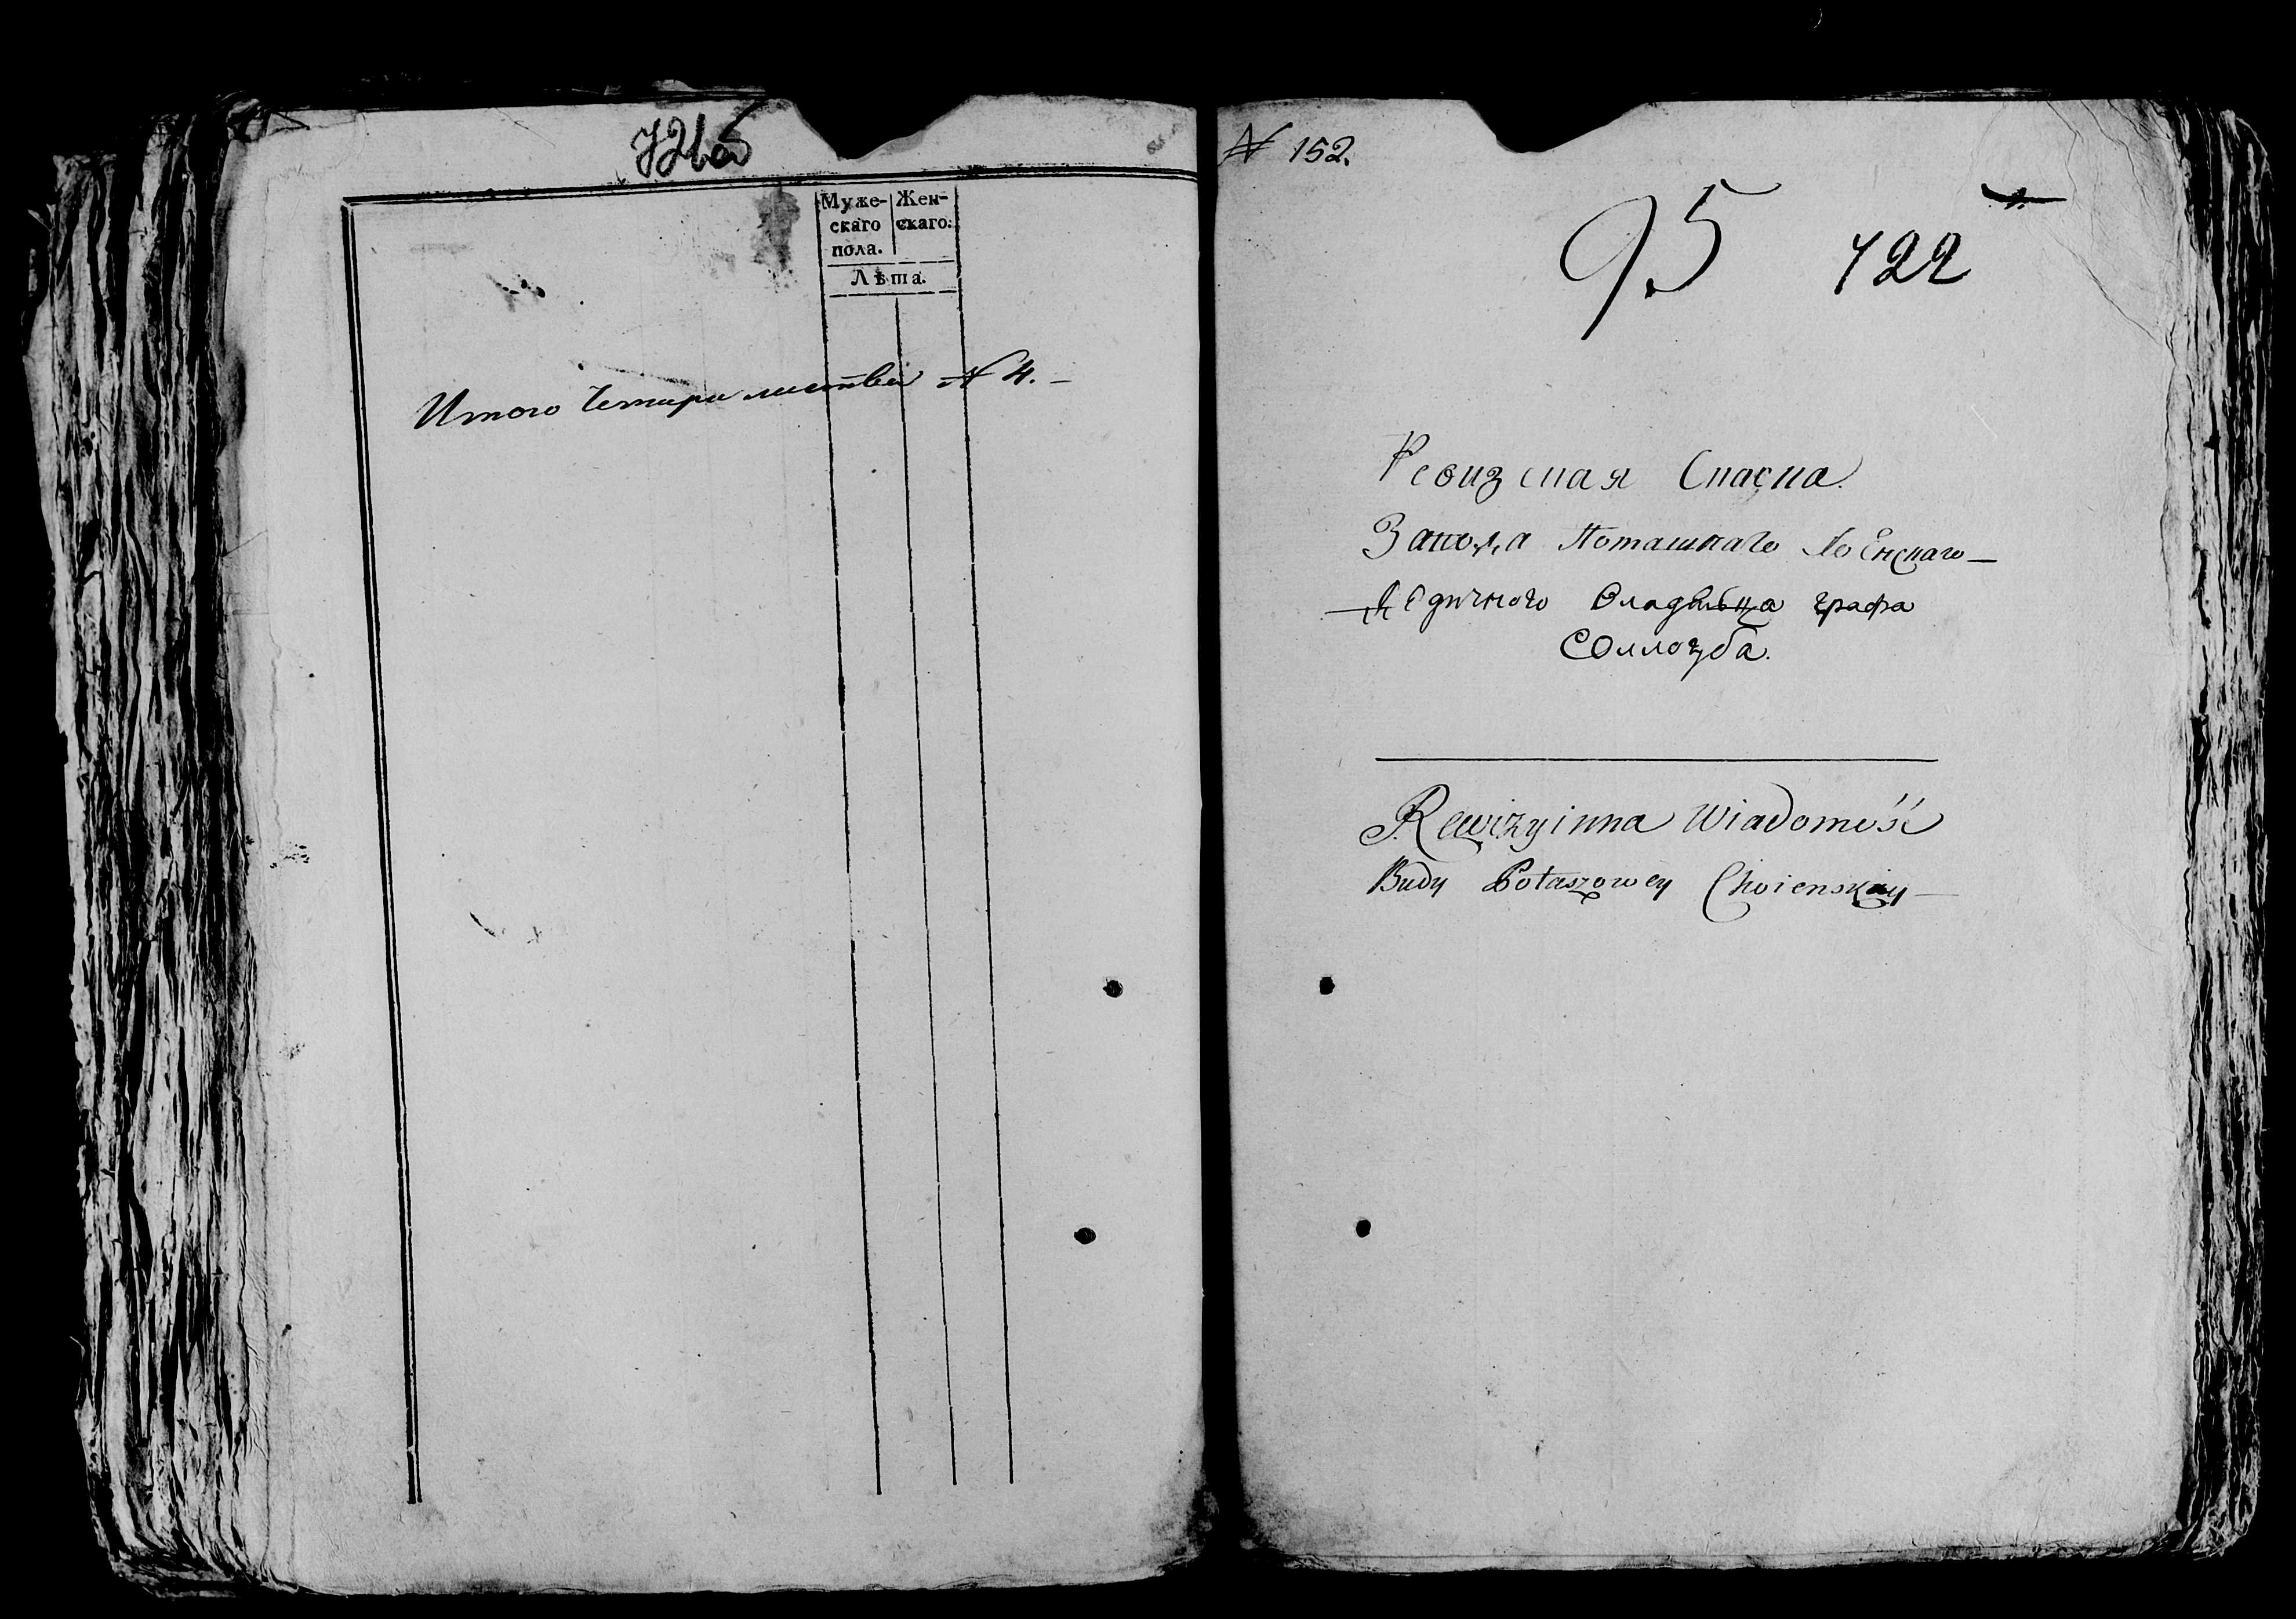 721об
Муже- Жен-
скаго скаго.
пола.
Лѣта.
Итого Четыри листва N 4. –
N 152.
95 722
Ревизская Сказка.
Завода Поташнаго Хоенскаго –
Едичного Владѣльца графа
Соллогуба.
Rewizyinna Wiadomość
Budy Potaszowey Choienskiey –